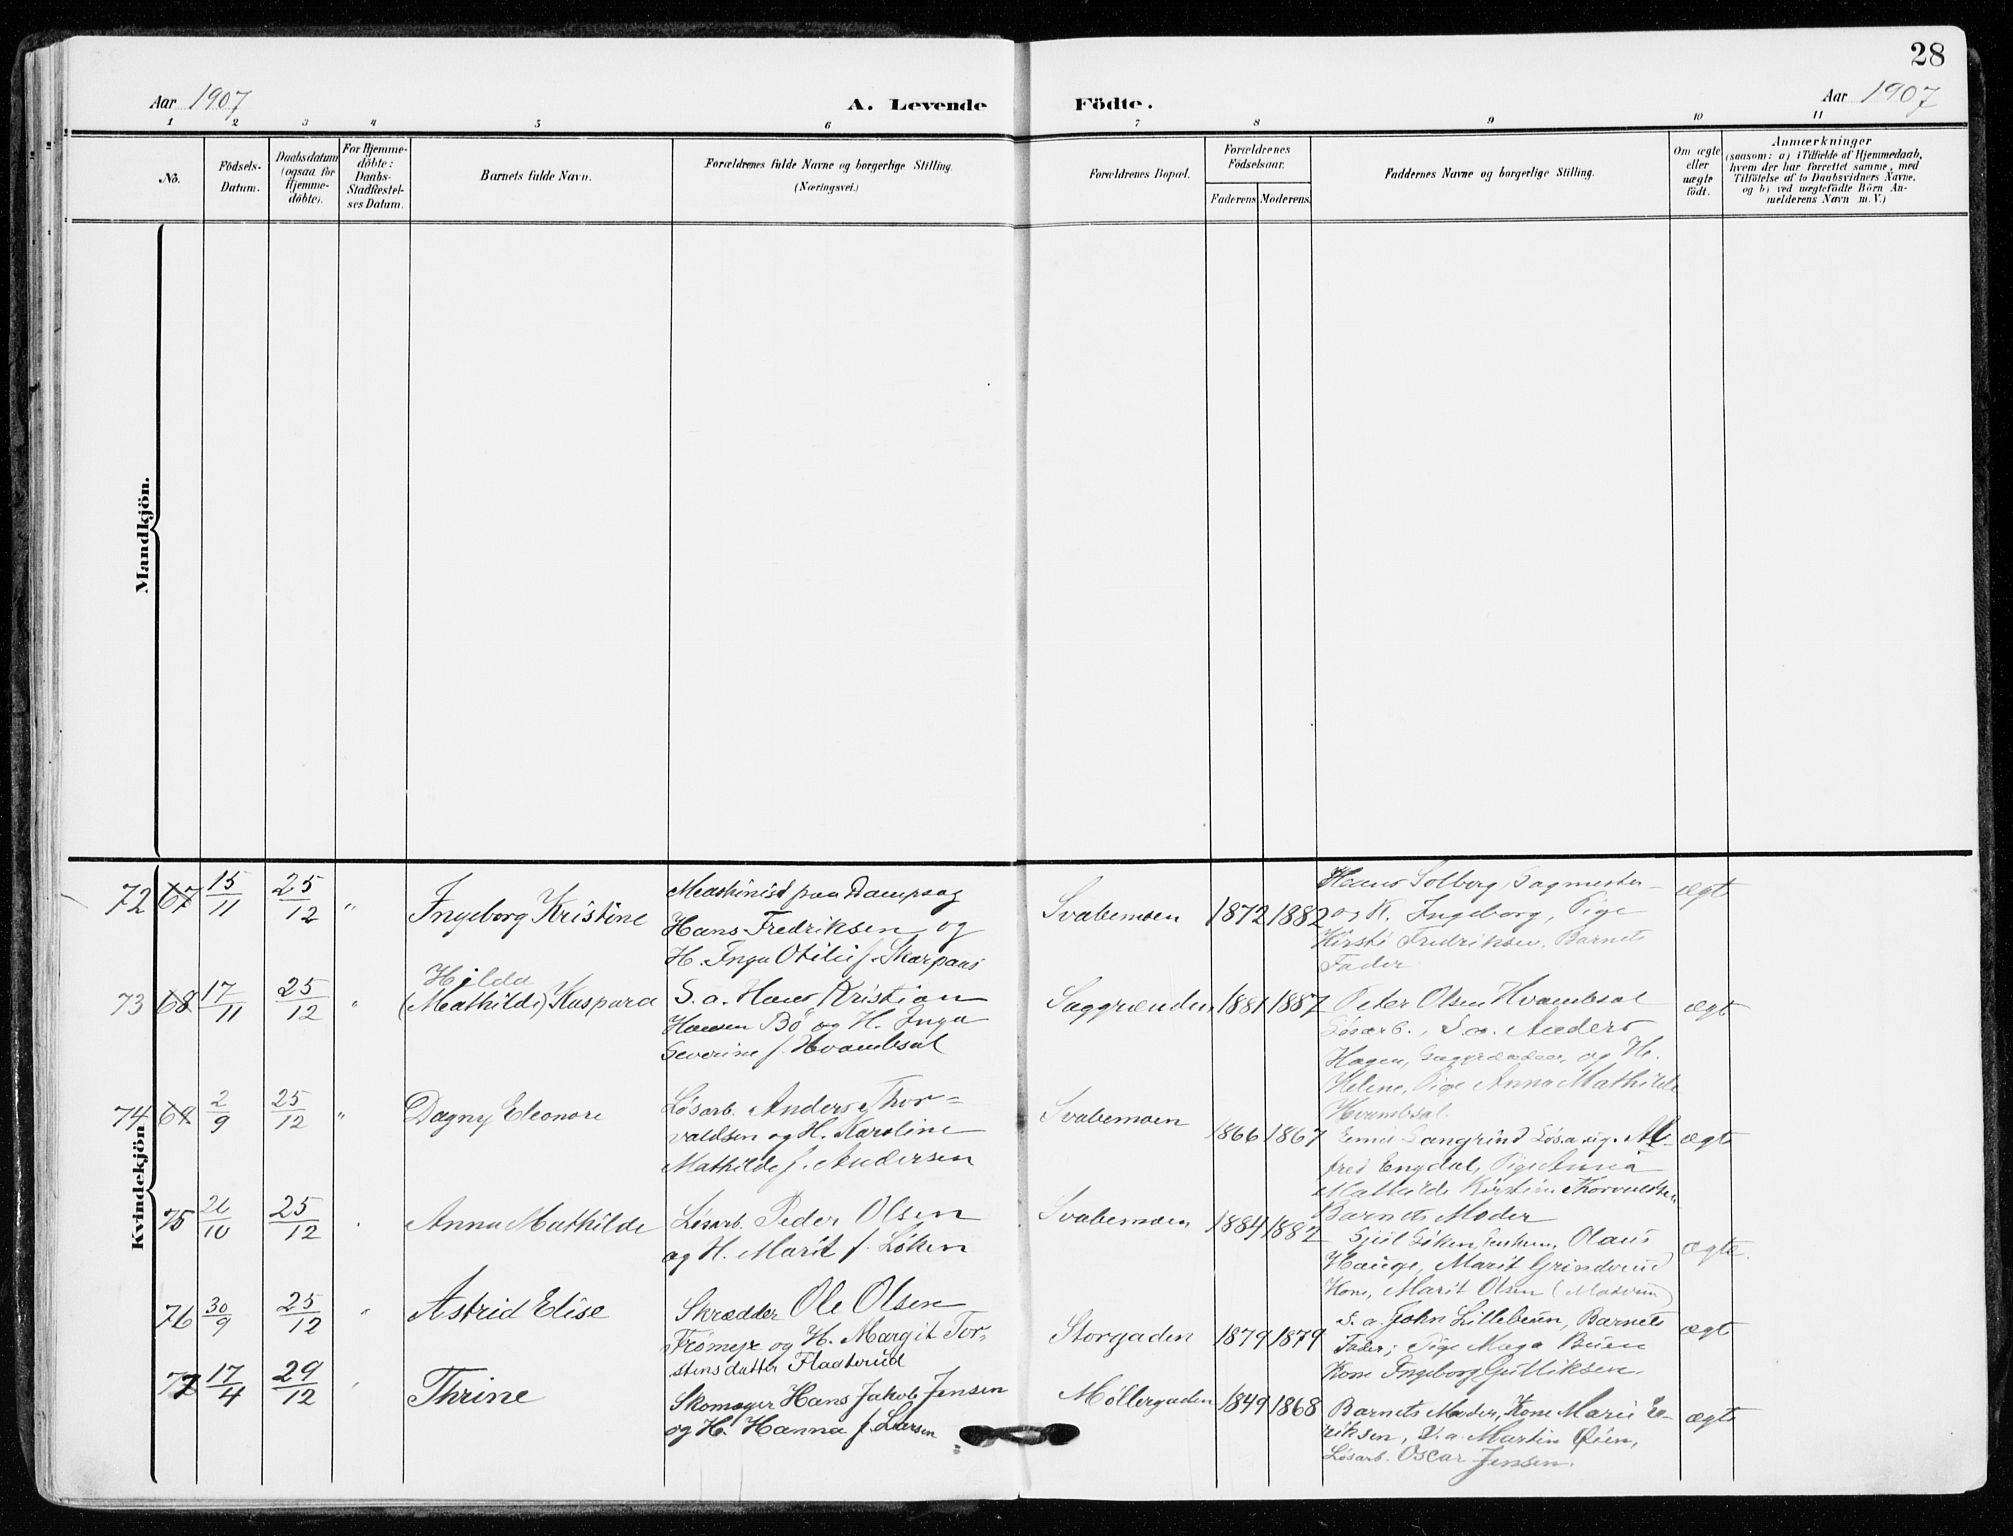 28
Aar 1907
A. Levende
Födte.
Aar 1907
1 2 3 4 5 6 7 8 9 10 11
No.
Födsels-
Datum.
Daabsdatum
(ogsaa for
Hjemme-
döbte).
For Hjemme-
döbte:
Daabs-
Stadfæstel-
ses Datum.
Barnets fulde Navn.
Forældrenes fulde Navne og borgerlige Stilling.
(Næringsvei.)
Forældrenes Bopæl.
Forældrenes
Födselsaar.
Faderens.
Moderens.
Faddernes Navne og borgerlige Stilling.
Om ægte
eller
uægte
födt.
Anmærkninger
(saasom: a) i Tilfælde af Hjemmedaab,
hvem der har forrettet samme, med
Tilföielse af to Daabsvidners Navne,
og b) ved uægtefödte Börn An-
melderens Navn m. V.)
Mandkjön.
Kvindekjön
72 67 15/11 25/12 "
Ingeborg Kristine
Maskinist paa Dampsag
Hans Fredriksen og
H. Inga Otilie f. Skarpaas
Svabemoen
1872 1882
Hans Solberg, Sagmester
og K. Ingeborg, Pige
Kirsti Fredriksen, Barnets
Fader
ægt
73 68 17/11 25/12 "
Hilda
(Mathilde) Kaspara
S. a. Hans Kristian
Hansen Bö og H. Inga
Severine f. Hvambsal
Saggrænden
1881 1887
Peter Olsen Hvambsal
Løsarb., S. a. Anders
Hagen, Saggrænden, og H.
Helene, Pige Anna Mathilde
Hvambsal.
ægt
74 69 2/9 25/12 "
Dagny Eleonore
Løsarb. Anders Thor-
valdsen og H. Karoline
Mathilde f. Andersen
Svabemoen
1866 1867
Emil Løsa og Al-
fred Engdal, Pige Anna
Mathilde Kirstine Thorvaldsen
Barnets Moder
ægte
75 26/10 25/12
Anna Mathilde
Løsarb. Peder Olsen
og H. Marit f. Løken
Svabemoen
1884 1882
Løken, Olaus
Hauge, Marit Grindrud
Kone, Marit Olsen
ægte.
76 30/9 25/12 "
Astrid Elise
Skrædder Ole Olsen
Frömyr og H. Margit Tor-
stensdatter Flaaterud
Storgaden
1879 1879
S. a. John Lillebuen, Barnets
Fader; Pige Maga Buen
Kone Ingeborg Gulliksen.
ægt
77 17/4 29/12
Thrine
Skomager Hans Jakob Jensen
og H. Hanna f. Larsen
Möllergaden
1849 1868
Barnets Moder, Kone Marie Ee-
riksen, S. a. Martin Øien,
Løsarb. Oscar Jensen.
ægte